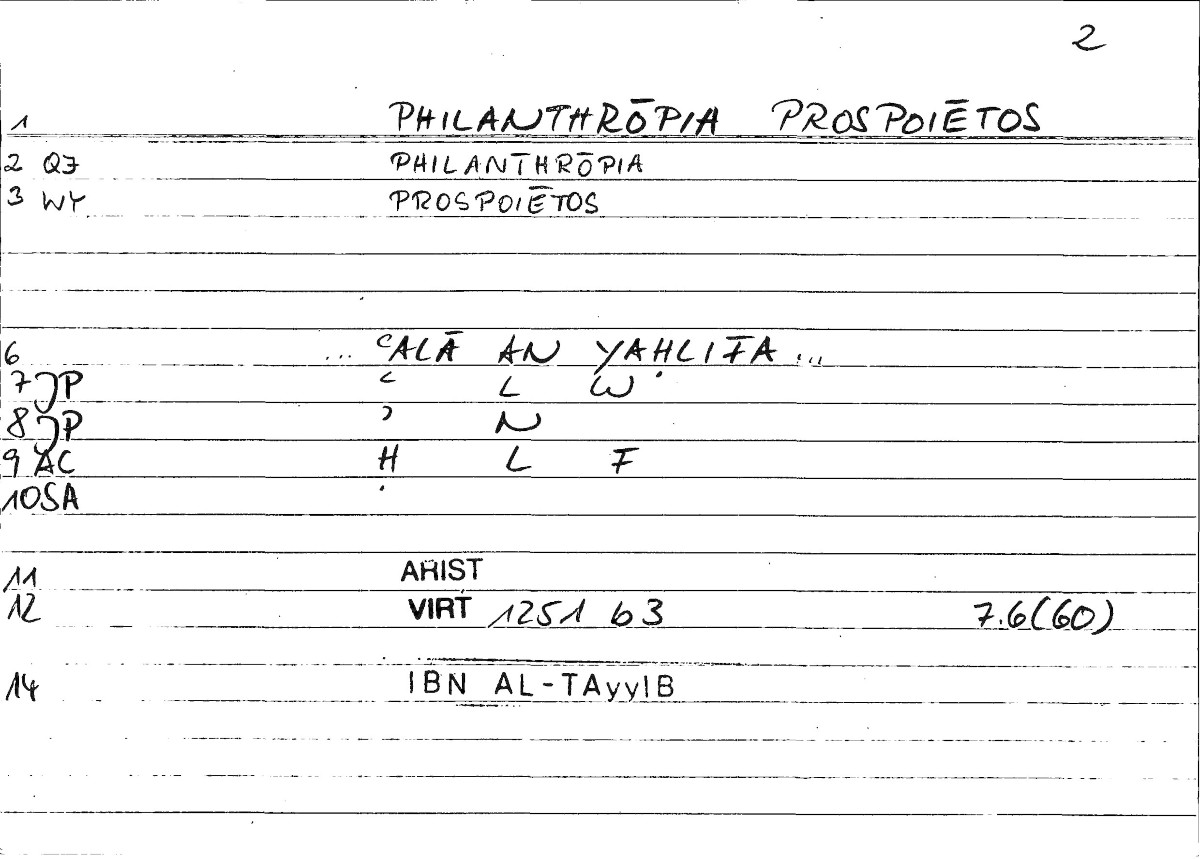 2
1 PHILANTHRŌPIA PROSPOIĒTOS
2 QJ PHILANTHRŌPIA
3 WY PROSPOIĒTOS
6 ... ʿALĀ AN YAḤLIFA ...
7 JP ʿ L W
8 JP ʾ N
9 AC Ḥ L F
10 SA
11 ARIST
12 VIRT 1251 b3 7.6(60)
14 IBN AL-TAyyIB